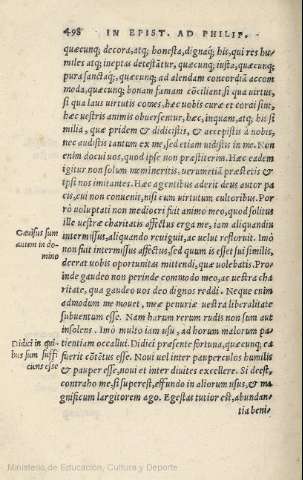 498 IN EPIST. AD PHILIP.
quæcunq; decora, atq; honesta, dignaq́; his, qui res hu/
miles atq; ineptas detestãtur, quæcunq; iusta, quæcunq;
pura sanctaq́;, quæcunq; ad alendam concordiã accom
moda, quæcunq; bonam famam cõciliant, si qua uirtus,
si qua laus uirtutis comes, hæc uobis curæ et cordi sint,
hæc uestris animis obseruentur, hæc, inquam, atq; his si
milia, quæ pridem & didicistis, & accepistis à nobis,
nec audistis tantum ex me, sed etiam uidistis in me. Non
enim docui uos, quod ipse non præstiterim. Hæc eadem
igitur non solum memineritis, uerumetiã præstetis &
ipsi nos imitantes. Hæc agentibus aderit deus autor pa
cis, cui non conuenit, nisi cum uirtutum cultoribus. Por
rò uoluptati non mediocri fuit animo meo, quod solitus
ille uestræ charitatis affectus erga me, tam aliquandiu
Gauisus sum intermissus, aliquando reuiguit, ac uelut refloruit. Imò
autem in do- non fuit intermissus affectus, sed quum is esset sui similis,
mino deerat uobis oportunitas mittendi, quæ uolebatis. Pro/
inde gaudeo non perinde commodo meo, ac uestra cha
ritate, qua gaudeo uos deo dignos reddi. Neque enim
admodum me mouet, meæ penuriæ uestra liberalitate
subuentum esse. Nam harum rerum rudis non sum aut
insolens. Imò multo iam usu, ad horum malorum pa/
Didici in qui/ tientiam occallui. Didici præsente fortuna, quæcunq; ea
bus sum suffi fuerit cõtẽtus esse. Noui uel inter pauperculos humilis
ciens esse & pauper esse, noui et inter diuites excellere. Si deest,
contraho me, si superest, effundo in aliorum usus, & ma
gnificum largitorem ago. Egestas tutior est, abundan/
tia beni/
Ministerio de Educación, Cultura y Deporte